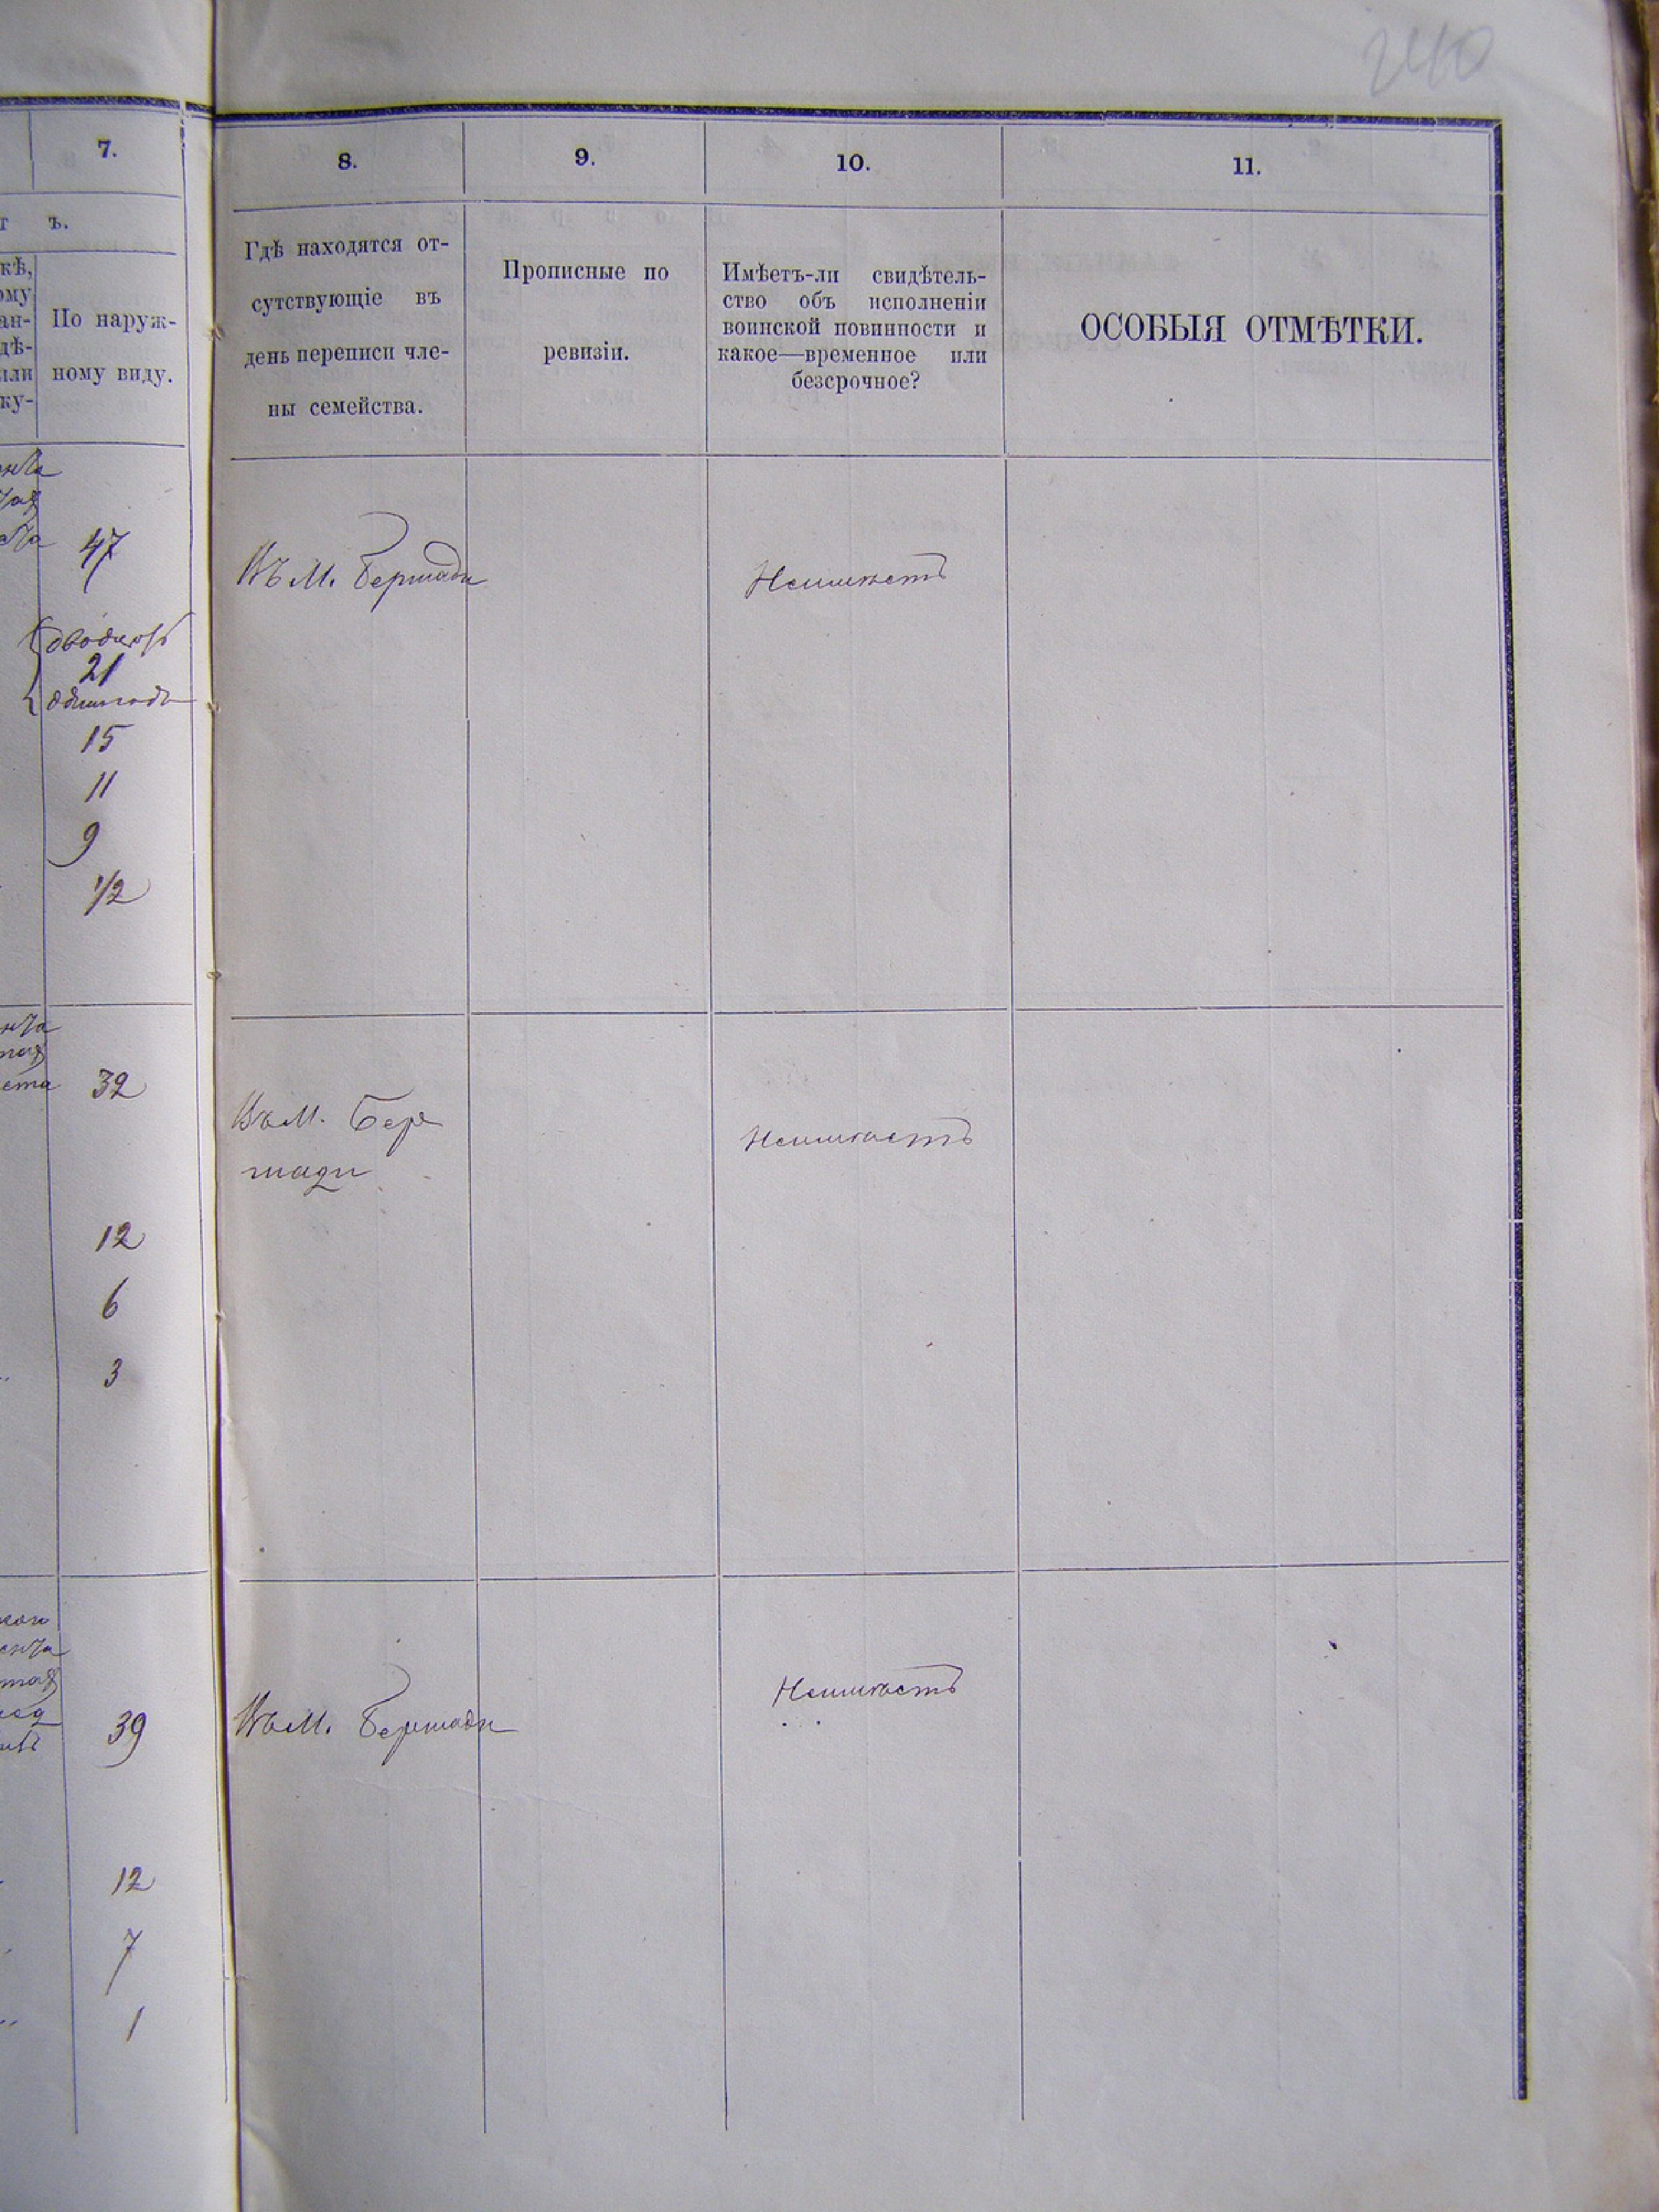 240
7. 8. 9. 10. 11.
ъ.
По наруж-
ному виду.
Гдѣ находятся от-
сутствующіе въ
день переписи чле-
ны семейства.
Прописные по
ревизіи.
Имѣетъ-ли свидѣтель-
ство объ исполненіи
воинской повинности и
какое—временное или
безсрочное?
ОСОБЫЯ ОТМѢТКИ.
47
Въ М. Бершади
Неимѣетъ
21
15
11
9
1/2
32
Въ М. Бер
шади
Неимѣетъ
12
6
3
39
Въ М. Бершади
Неимѣетъ
12
7
1